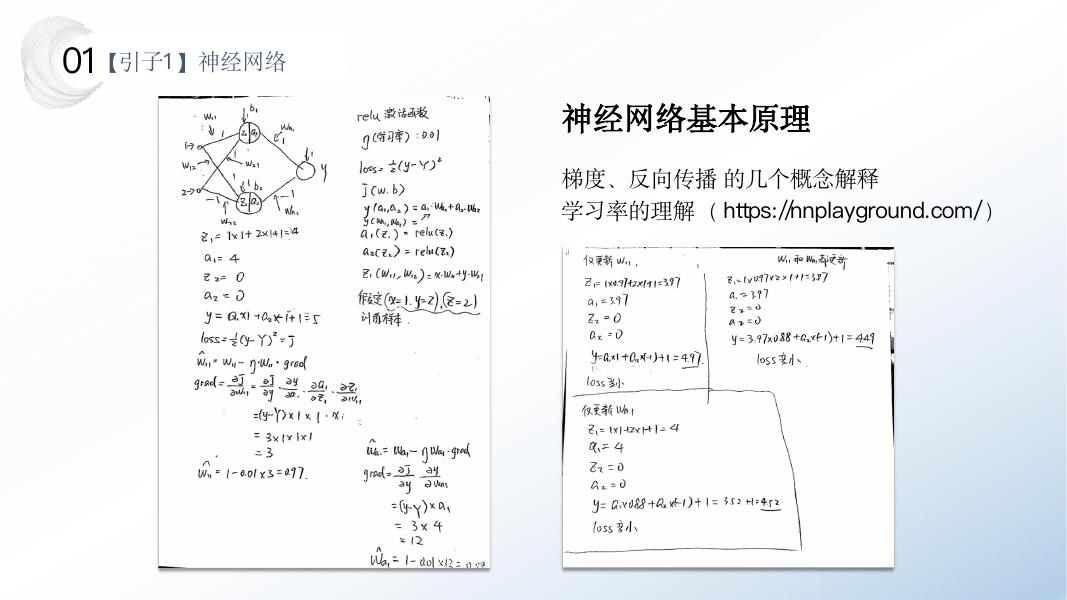 01【引子1】神经网络
神经网络基本原理
梯度、反向传播 的几个概念解释
学习率的理解（ https://hnplayground.com/）
w₁₁
b₁
wa₁
1→
z₁ a₁
1
w₁₂
w₂₁
y
2→
b₂
z₂ a₂
-1
-1
w₂₂
wa₂
z₁= 1x1+2x1+1=4
a₁= 4
z₂= 0
a₂= 0
y= a₁x1+a₂x-1+1=5
loss=½(y-Y)²=J
ŵ₁₁= w₁₁-η·w₁₁·grad
grad=∂J/∂w₁₁=∂J/∂y·∂y/∂a₁·∂a₁/∂z₁·∂z₁/∂w₁₁
=(y-Y)x1x1·x₁
= 3x1x1x1
=3
ŵ₁₁= 1-0.01x3=0.97.
relu 激活函数
η(学习率):0.01
loss=½(y-Y)²
J(w.b)
y(a₁,a₂)=a₁·wa₁+a₂·wa₂
y(wa₁,wa₂)=
a₁(z₁)=relu(z₁)
a₂(z₂)=relu(z₂)
z₁(w₁₁,w₁₂)=x·w₁₁+y·w₂₁
假定(x=1,y=2),(z=2)
训练样本.
ŵa₁=wa₁-ηwa₁·grad
grad=∂J/∂y·∂y/∂wa₁
=(y-Y)xa₁
= 3x4
=12
ŵa₁= 1-0.01x12=0.88
仅更新w₁₁,
z₁=1x0.97+2x1+1=3.97
a₁=3.97
z₂=0
a₂=0
y=a₁x1+a₂x(-1)+1=4.97.
loss变小.
w₁₁和wa₁都更新
z₁=1x0.97x2x1+1=3.97
a₁=3.97
z₂=0
a₂=0
y=3.97x0.88+a₂x(-1)+1=4.49
loss变小、
仅更新wa₁
z₁=1x1+2x1+1=4
a₁=4
z₂=0
a₂=0
y=a₁x0.88+a₂x(-1)+1=3.52+1=4.52
loss变小、